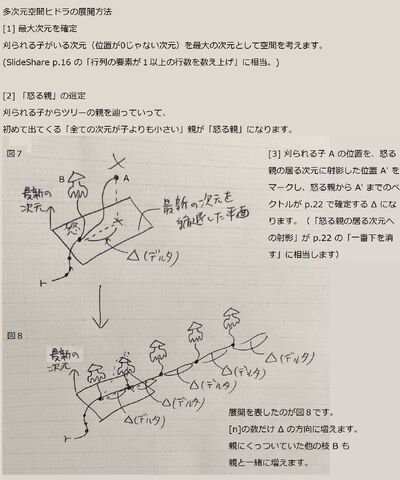 多次元空間ヒドラの展開方法
[1] 最大次元を確定
刈られる子がいる次元（位置が0じゃない次元）を最大の次元として空間を考えます。
(SlideShare p.16 の「行列の要素が１以上の行数を数え上げ」に相当。)
[2] 「怒る親」の選定
刈られる子からツリーの親を辿っていって、
初めて出てくる「全ての次元が子よりも小さい」親が「怒る親」になります。
図7
B
A
最新の
次元
怒
最新の次元を
縮退した平面
Δ(デルタ)
ト
[3] 刈られる子 A の位置を、怒る
親の居る次元に射影した位置 A' を
マークし、怒る親から A' までのベ
クトルが p.22 で確定する Δ にな
ります。（「怒る親の居る次元へ
の射影」が p.22 の「一番下を消
す」に相当します）
図8
最新の
次元
Δ(デルタ)
Δ(デルタ)
Δ(デルタ)
Δ(デルタ)
ト
展開を表したのが図８です。
[n]の数だけ Δ の方向に増えます。
親にくっついていた他の枝 B も
親と一緒に増えます。